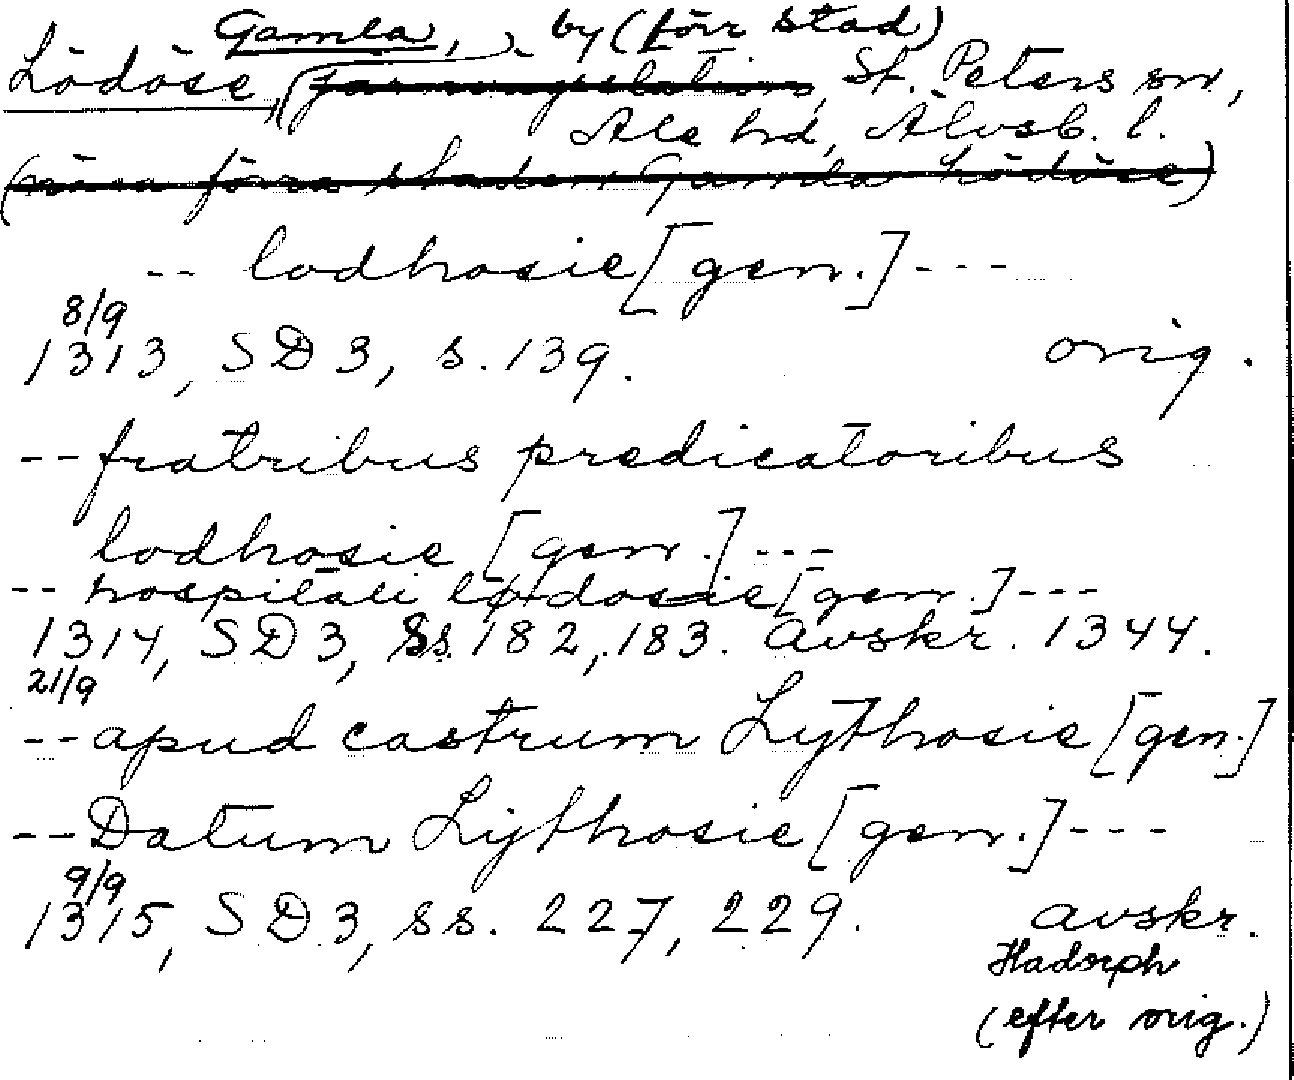 Gamla, by (förr stad)
Lödöse, (järnvägsstation), St. Peters sn,
Ale hd, Älvsb. l.
(nära förra staden Gamla Lödöse)
-- lodhosie [gen.] ---
8/9
1313, SD 3, s. 139. orig.
-- fratribus predicatoribus
lodhosie [gen.] ---
-- hospitali lødosie [gen.] ---
1314, SD 3, ss. 182, 183. avskr. 1344.
21/9
-- apud castrum Lythosie [gen.]
-- Datum Lythosie [gen.] ---
9/9
1315, SD 3, ss. 227, 229. avskr.
Hadorph
(efter orig.)